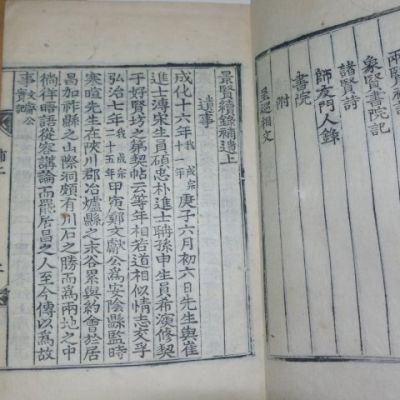 象賢書院記
諸賢詩
師友門人錄
書院
附
景賢續錄補遺上
遺事
成化十六年我成宗十一年庚子六月初六日先生與崔
進士溥宋生員碩忠朴進士聃孫申生員希演修契
于好賢坊之第契帖云等年相若道相似情志交孚
弘治七年我成宗二十五年甲寅鄭文獻公爲安陰縣監時
寒暄先生在陜川郡冶爐縣之末谷累與約會於居
昌加祚縣之山際洞頗有川石之勝而爲兩地之中
徜徉晤語從容講論而罷居昌之人至今傳以爲故
事文獻公實記